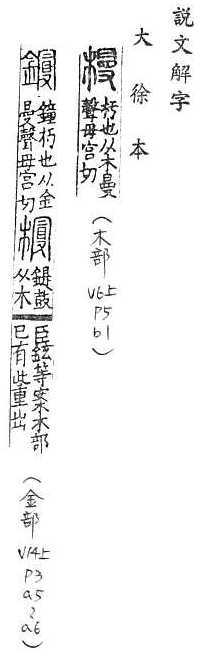 説文解字
大徐本
槾
杇也从木曼
聲母官切
（木部 V6上 P5 b1）
鏝
鐵杇也从金
曼聲母官切
槾
鏝或
从木
臣鉉等案木部
已有此重出
（金部 V14上 P3 a5~a6）